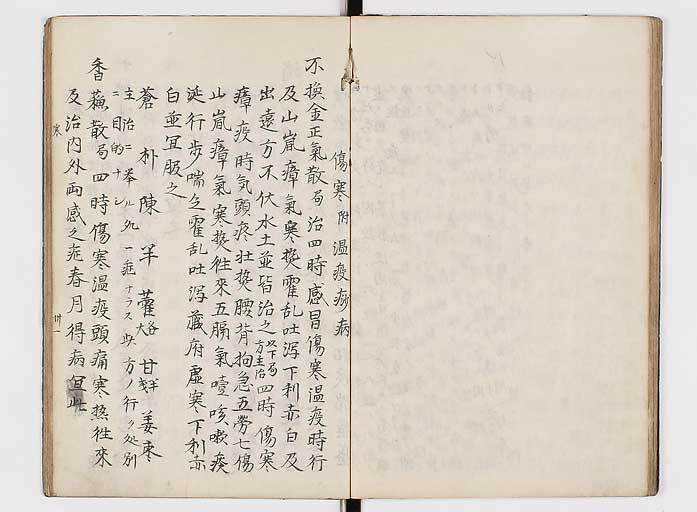 傷寒 附 温疫痧病
不換金正氣散 局 治四時感冒傷寒温疫時行
及山嵐瘴氣寒熱霍乱吐瀉下利赤白及
出遠方不伏水土並皆治之 以下局方主治 四時傷寒
瘴疫時気頭疼壮熱腰背拘急五勞七傷
山嵐瘴氣寒熱往來五膈氣噎咳嗽痰
涎行歩喘乏霍乱吐瀉蔵府虚寒下利赤
白並宜服之
蒼 朴 陳 半 藿 各 甘 姜 棗
主治ニ挙ル処一症ナラス此方ノ行ク処別
ニ目的ナシ
香蘓散 局 四時傷寒温疫頭痛寒熱往來
及治内外両感之症春月得病宜此
寒
卅一